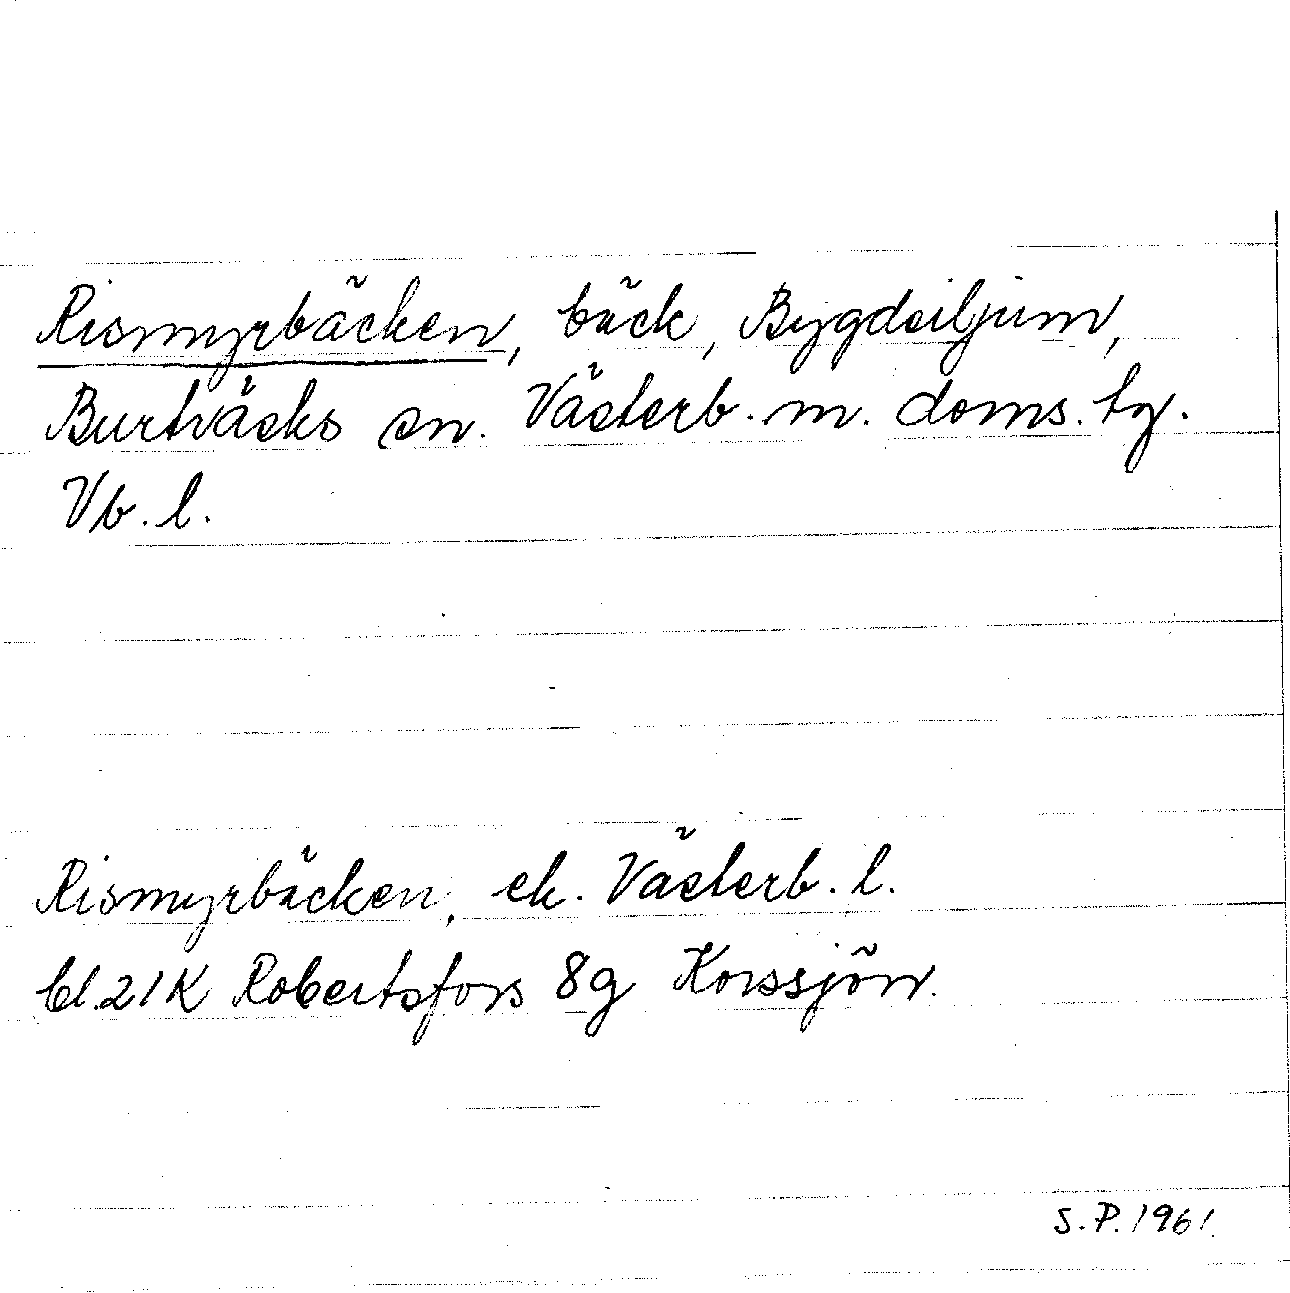 Rismyrbäcken, bäck, Bygdsiljum,
Burträsks sn. Västerb. m. doms. tg.
Vb. l.
Rismyrbäcken, ek. Västerb. l.
bl. 21K Robertsfors 8g Korssjön.
S. P. 1961.